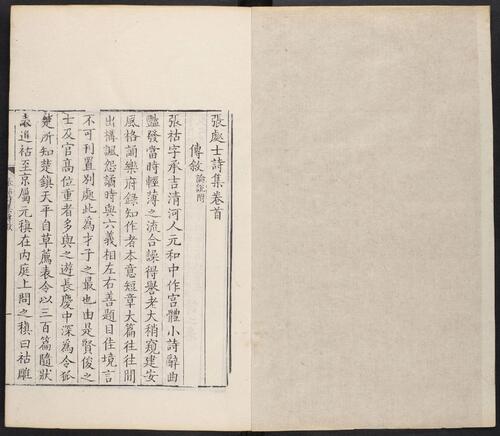 張處士詩集卷首
傳敘 論說附
張祜字承吉清河人元和中作宮體小詩辭曲
豔發當時輕薄之流合譟得譽老大稍窺建安
風格誦樂府錄知作者本意短章大篇往往間
出搆諷怨譎時與六義相左右善題目佳境言
不可刊置別處此為才子之最也由是賢俊之
士及官高位重者多與之遊長慶中深為令狐
楚所知楚鎮天平自草薦表令以三百篇隨狀
表進祜至京屬元稹在內庭上問之稹曰祜雕